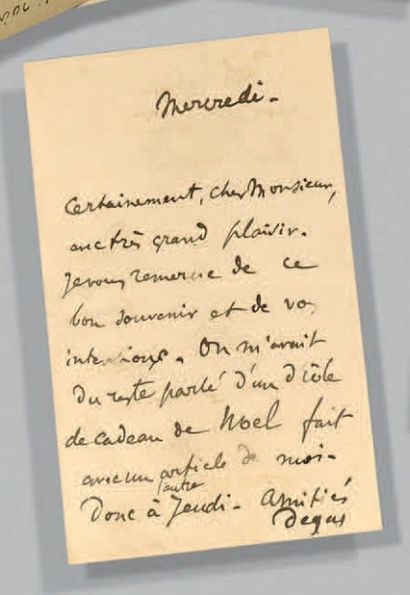 Mercredi -
Certainement, cher Monsieur,
avec très grand plaisir.
Je vous remercie de ce
bon souvenir et de vos
intentions. On m'avait
du reste parlé d'un drôle
de cadeau de Noel fait
avec un article de moi -
autre
Donc à Jeudi - Amitiés
Degas